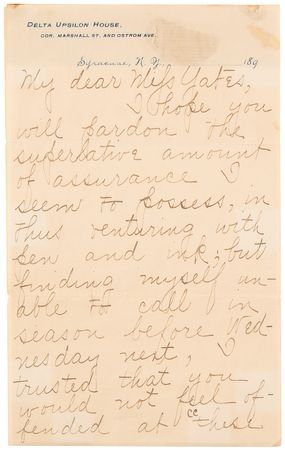 DELTA UPSILON HOUSE,
COR. MARSHALL ST. AND OSTROM AVE.
Syracuse, N. Y. 189
My dear Miss Yates,
I hope you
will pardon the
superlative amount
of assurance I
seem to possess, in
thus venturing with
pen and ink; but
finding myself un-
able to call in
season before Wed-
nesday next, I
trusted that you
would not feel of-
fended at "these